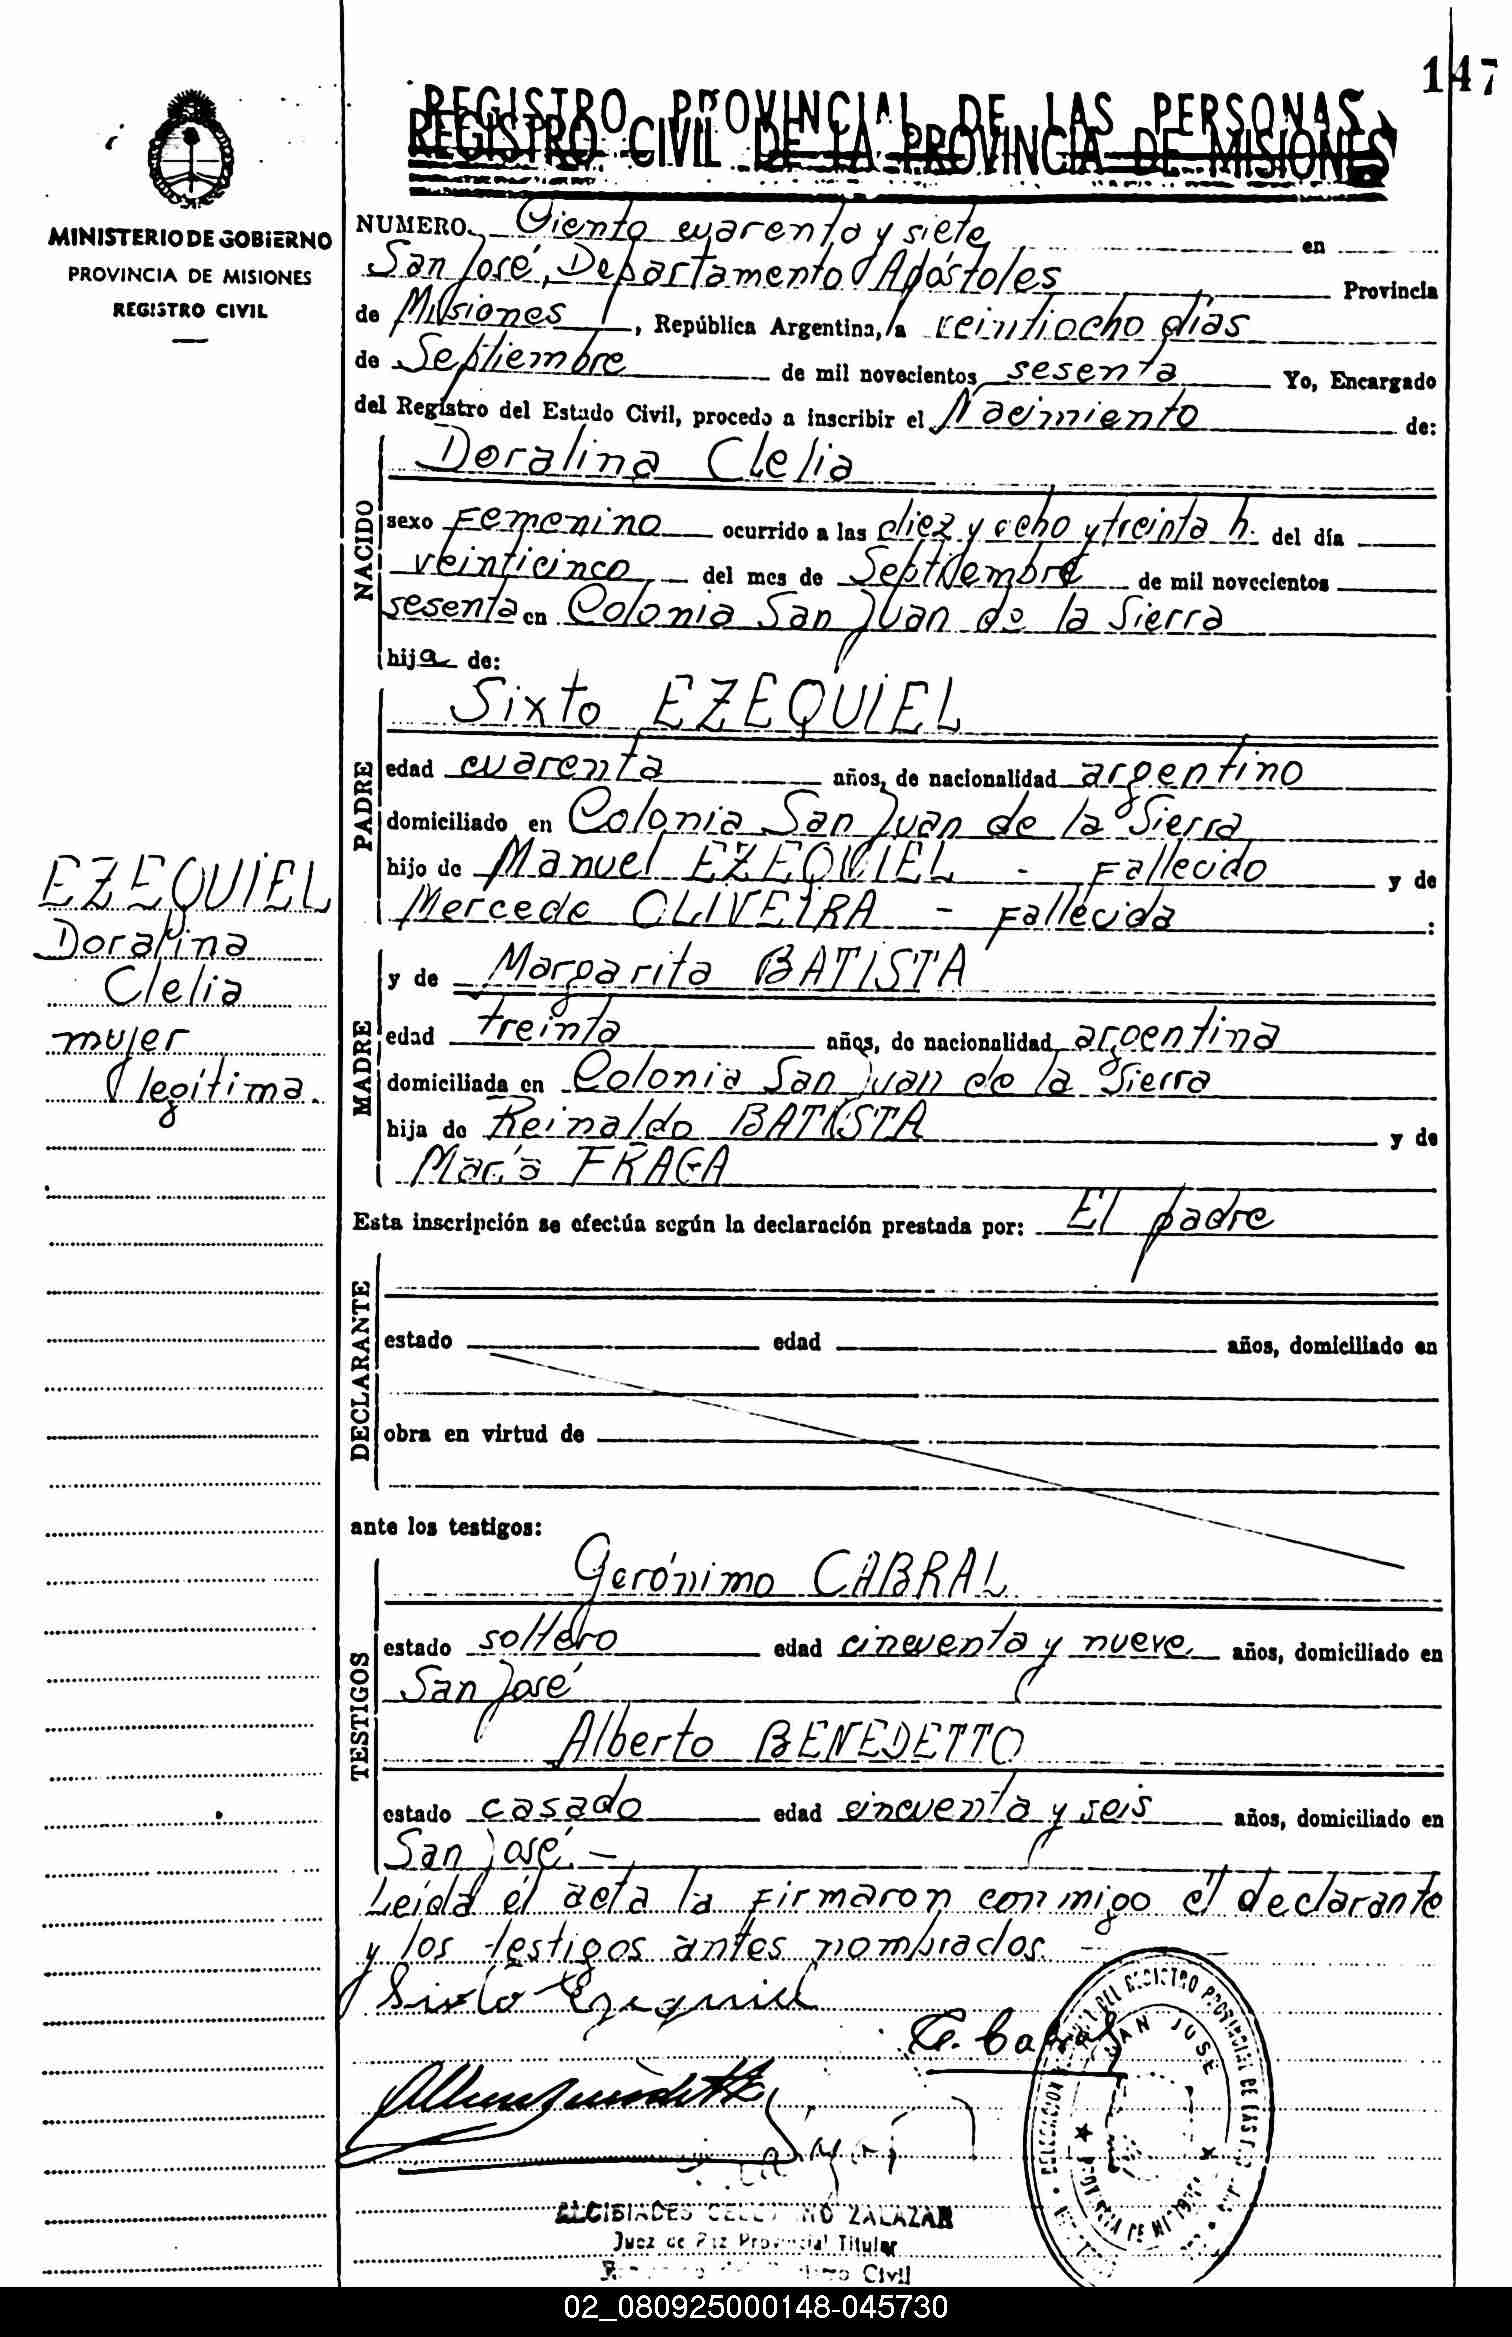 147
REGISTRO PROVINCIAL DE LAS PERSONAS
REGISTRO CIVIL DE LA PROVINCIA DE MISIONES
MINISTERIO DE GOBIERNO
PROVINCIA DE MISIONES
REGISTRO CIVIL
NUMERO Ciento cuarenta y siete en
San José, Departamento Apóstoles Provincia
de Misiones, República Argentina, a veintiocho días
de Septiembre de mil novecientos sesenta Yo, Encargado
del Registro del Estado Civil, procedo a inscribir el Nacimiento de:
NACIDO
Doralina Clelia
sexo Femenino ocurrido a las diez y ocho y treinta h. del día
veinticinco del mes de Septiembre de mil novecientos
sesenta en Colonia San Juan de la Sierra
hija de:
PADRE
Sixto EZEQUIEL
edad cuarenta años, de nacionalidad argentino
domiciliado en Colonia San Juan de la Sierra
hijo de Manuel EZEQUIEL - Fallecido y de
Mercede OLIVEIRA - Fallecida :
EZEQUIEL
Doralina
Clelia
mujer
legítima.
MADRE
y de Margarita BATISTA
edad treinta años, de nacionalidad argentina
domiciliada en Colonia San Juan de la Sierra
hija de Reinaldo BATISTA y de
María FRAGA
Esta inscripción se efectúa según la declaración prestada por: El padre
DECLARANTE
estado edad años, domiciliado en
obra en virtud de
ante los testigos:
TESTIGOS
Gerónimo CABRAL
estado soltero edad cincuenta y nueve años, domiciliado en
San José
Alberto BENEDETTO
estado casado edad cincuenta y seis años, domiciliado en
San José.-
Leída el acta la firmaron conmigo el declarante
y los testigos antes nombrados.
Sixto Ezequiel
G. Cabral
SAN JOSE
ALCIBIADES ZALAZAR
Juez de Paz Provincial Titular
Civil
02_080925000148-045730